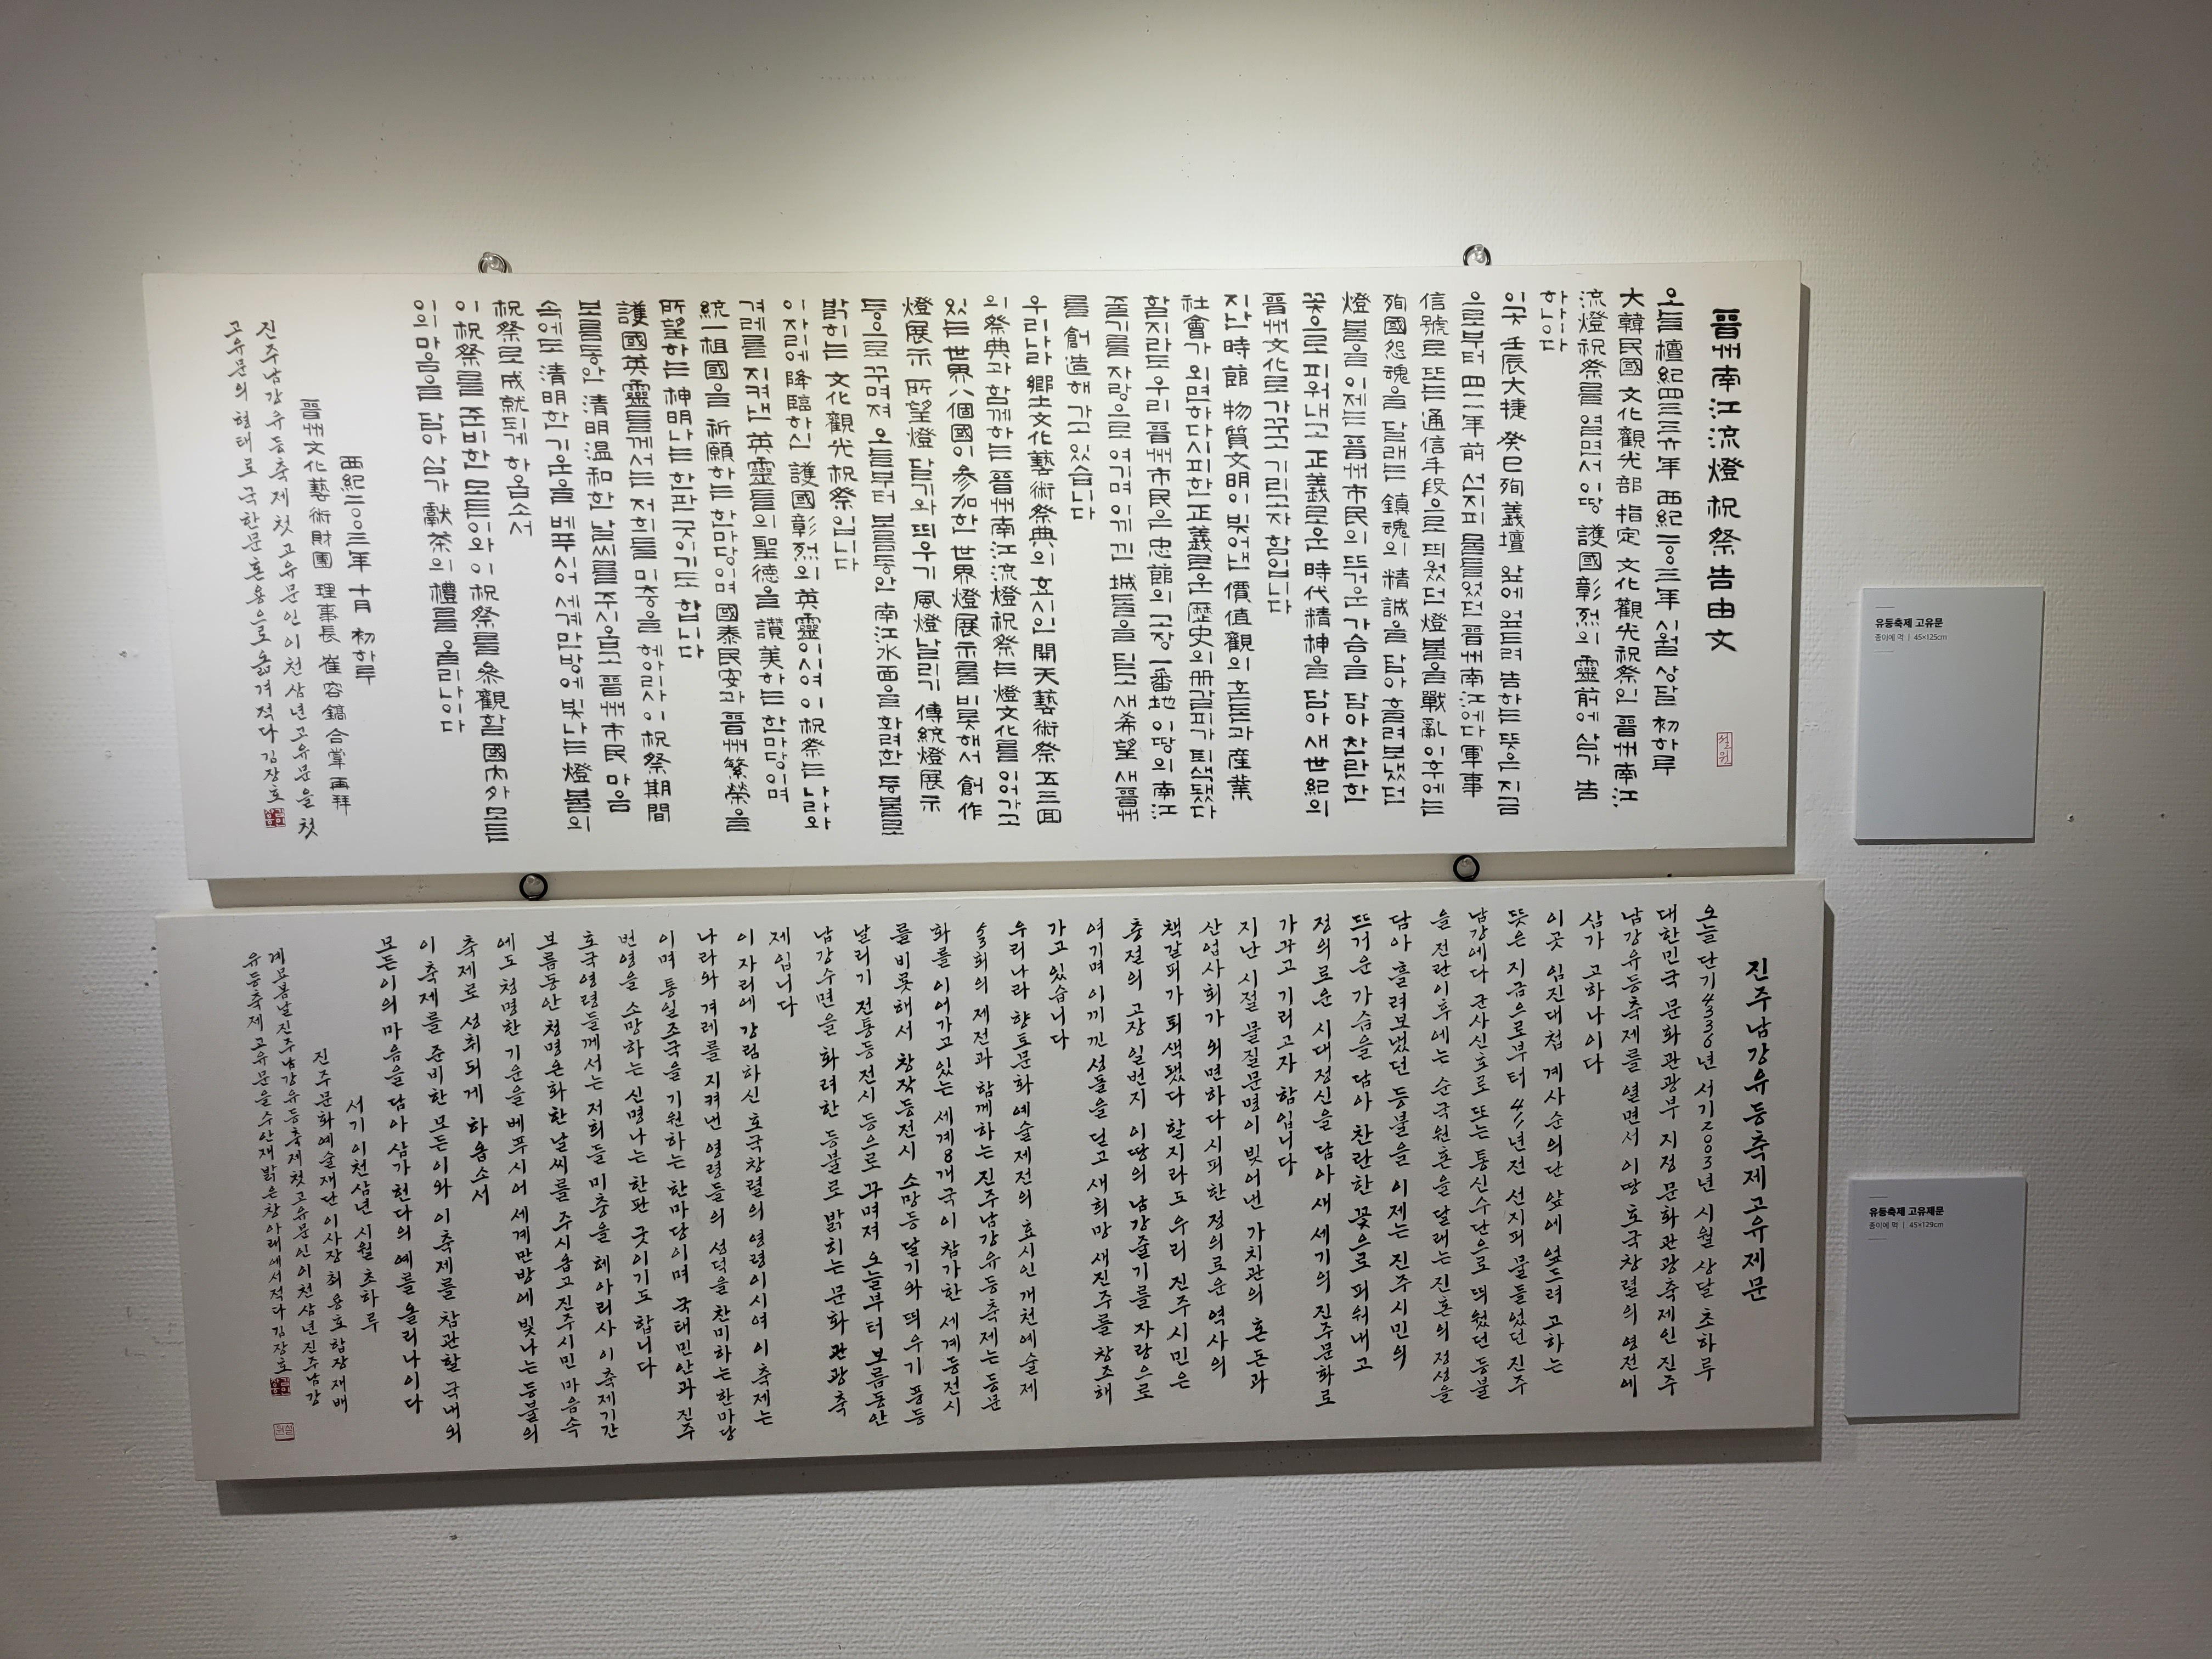 晉州南江流燈祝祭告由文
설원
오늘 檀紀四三三六年 西紀二〇〇三年 시월 상달 初하루
大韓民國 文化觀光部 指定 文化觀光祝祭인 晉州南江
流燈祝祭를 열면서 이땅 護國彰烈의 靈前에 삼가 告
하나이다
이곳 壬辰大捷 癸巳殉義壇 앞에 엎드려 告하는 뜻은 지금
으로부터 四一一年前 선지피 물들었던 晉州南江에다 軍事
信號로 또는 通信手段으로 띄웠던 燈불을 戰亂이후에는
殉國怨魂을 달래는 鎭魂의 精誠을 담아 흘려보냈던
燈불을 이제는 晉州市民의 뜨거운 가슴을 담아 찬란한
꽃으로 피워내고 正義로운 時代精神을 담아 새世紀의
晉州文化로 가꾸고 기리고자 함입니다
지난 時節 物質文明이 빚어낸 價値觀의 혼돈과 産業
社會가 외면하다시피한 正義로운 歷史의 冊갈피가 퇴색됐다
할지라도 우리 晉州市民은 忠節의 고장 一番地 이땅의 南江
줄기를 자랑으로 여기며 이끼낀 城돌을 딛고 새希望 새晉州
를 創造해 가고 있습니다
우리나라 鄕土文化藝術祭典의 효시인 開天藝術祭 五三回
의 祭典과 함께하는 晉州南江流燈祝祭는 燈文化를 이어가고
있는 世界八個國이 參加한 世界燈展示를 비롯해서 創作
燈展示 所望燈 달기와 띄우기 風燈날리기 傳統燈展示
등으로 꾸며져 오늘부터 보름동안 南江水面을 화려한 등불로
밝히는 文化觀光祝祭입니다
이자리에 降臨하신 護國彰烈의 英靈이시여 이 祝祭는 나라와
겨레를 지켜낸 英靈들의 聖德을 讚美하는 한마당이며
統一祖國을 祈願하는 한마당이며 國泰民安과 晉州繁榮을
所望하는 神明나는 한판 굿이기도 합니다
護國英靈들께서는 저희들 미충을 헤아리사 이 祝祭期間
보름동안 淸明溫和한 날씨를 주시옵고 晉州市民 마음
속에도 淸明한 기운을 베푸시어 세계만방에 빛나는 燈불의
祝祭로 成就되게 하옵소서
이 祝祭를 준비한 모든이와 이 祝祭를 參觀할 國內外 모든
이의 마음을 담아 삼가 獻茶의 禮를 올리나이다
西紀二〇〇三年 十月 初하루
晉州文化藝術財團 理事長 崔容鎬 合掌 再拜
진주남강유등축제 첫 고유문인 이천삼년 고유문을 첫
고유문의 형태로 국한문혼용으로 옮겨적다 김장호
유등축제 고유문
종이에 먹 | 45×125cm
진주남강유등축제고유제문
오늘 단기4336년 서기2003년 시월 상달 초하루
대한민국 문화관광부 지정 문화관광축제인 진주
남강유등축제를 열면서 이땅 호국창렬의 영전에
삼가 고하나이다
이곳 임진대첩 계사순의단 앞에 엎드려 고하는
뜻은 지금으로부터 411년전 선지피 물들었던 진주
남강에다 군사신호로 또는 통신수단으로 띄웠던 등불
을 전란이후에는 순국원혼을 달래는 진혼의 정성을
담아 흘려보냈던 등불을 이제는 진주시민의
뜨거운 가슴을 담아 찬란한 꽃으로 피워내고
정의로운 시대정신을 담아 새 세기의 진주문화로
가꾸고 기리고자 함입니다
지난 시절 물질문명이 빚어낸 가치관의 혼돈과
산업사회가 외면하다시피 한 정의로운 역사의
책갈피가 퇴색됐다 할지라도 우리 진주시민은
충절의 고장 일번지 이땅의 남강줄기를 자랑으로
여기며 이끼낀 성돌을 딛고 새희망 새진주를 창조해
가고 있습니다
우리나라 향토문화예술제전의 효시인 개천예술제
53회의 제전과 함께하는 진주남강유등축제는 등문
화를 이어가고 있는 세계8개국이 참가한 세계등전시
를 비롯해서 창작등전시 소망등 달기와 띄우기 풍등
날리기 전통등전시 등으로 꾸며져 오늘부터 보름동안
남강수면을 화려한 등불로 밝히는 문화관광축
제입니다
이 자리에 강림하신 호국창렬의 영령이시여 이 축제는
나라와 겨레를 지켜낸 영령들의 성덕을 찬미하는 한마당
이며 통일조국을 기원하는 한마당이며 국태민안과 진주
번영을 소망하는 신명나는 한판 굿이기도 합니다
호국영령들께서는 저희들 미충을 헤아리사 이 축제기간
보름동안 청명온화한 날씨를 주시옵고 진주시민 마음속
에도 청명한 기운을 베푸시어 세계만방에 빛나는 등불의
축제로 성취되게 하옵소서
이 축제를 준비한 모든이와 이 축제를 참관할 국내외
모든이의 마음을 담아 삼가 헌다의 예를 올리나이다
서기 이천삼년 시월 초하루
진주문화예술재단 이사장 최용호 합장 재배
계묘봄날 진주남강유등축제 첫 고유문인 이천삼년 진주남강
유등축제 고유문을 수안재 밝은창 아래에서 적다 김장호
유등축제 고유제문
종이에 먹 | 45×129cm